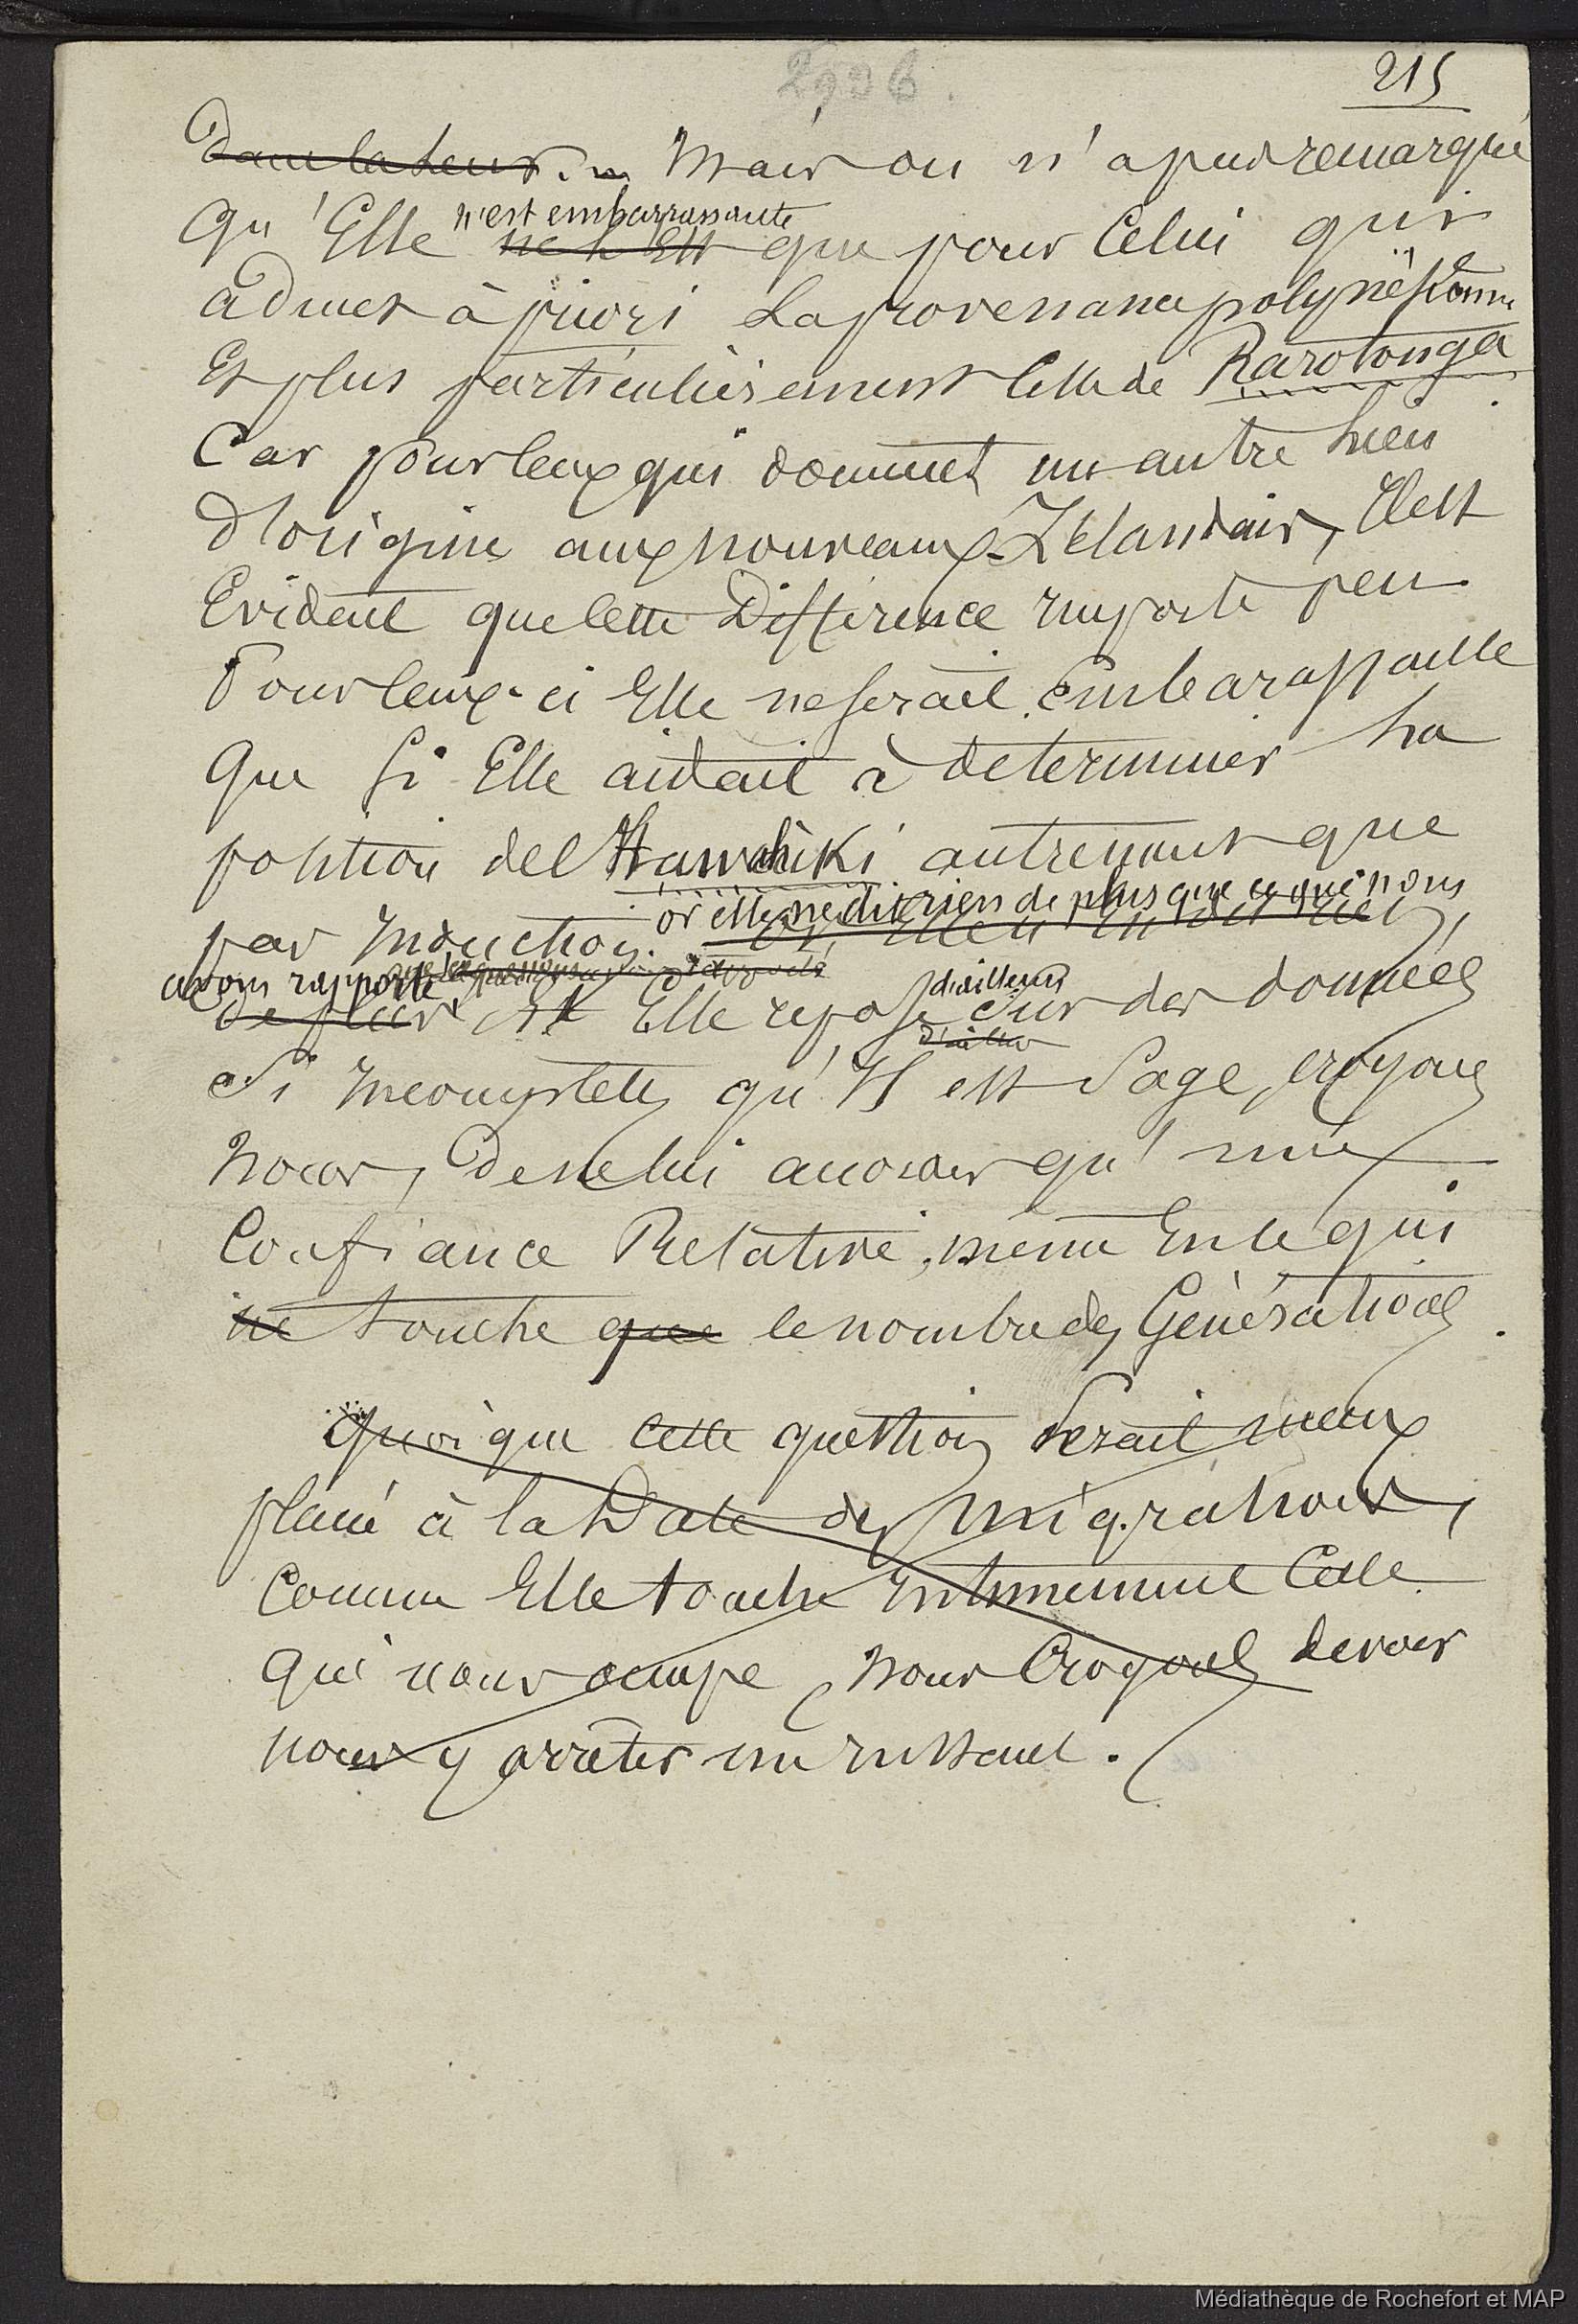 2936.
215
dans la leur. Mais on n'a pas remarqué
qu'Elle n'est embarrassante que pour celui qui
admet à priori la provenance polynésienne
Et plus particulièrement celle de Rarotonga.
Car pour ceux qui donnent un autre lieu
d'origine aux nouveaux-Zélandais, il est
Evident que cette Différence importe peu.
Pour ceux-ci Elle ne serait embarassante
que si Elle aidait à determiner la
position de l'Hawahiki autrement que
par Induction. or elle ne dit rien de plus que ce que nous
avons rapporté Et Elle repose d'ailleurs sur des données
si incomplètes qu'Il est Sage, croyons
nous, de ne lui accorder qu'une
Confiance Relative, même En ce qui
ne touche que le nombre des Générations.
Quoique cette question serait mieux
placé à la Date des migrations,
Comme Elle touche intimement Celle
qui nous occupe, nous Croyons devoir
nous y arrêter un instant.
Médiathèque de Rochefort et MAP